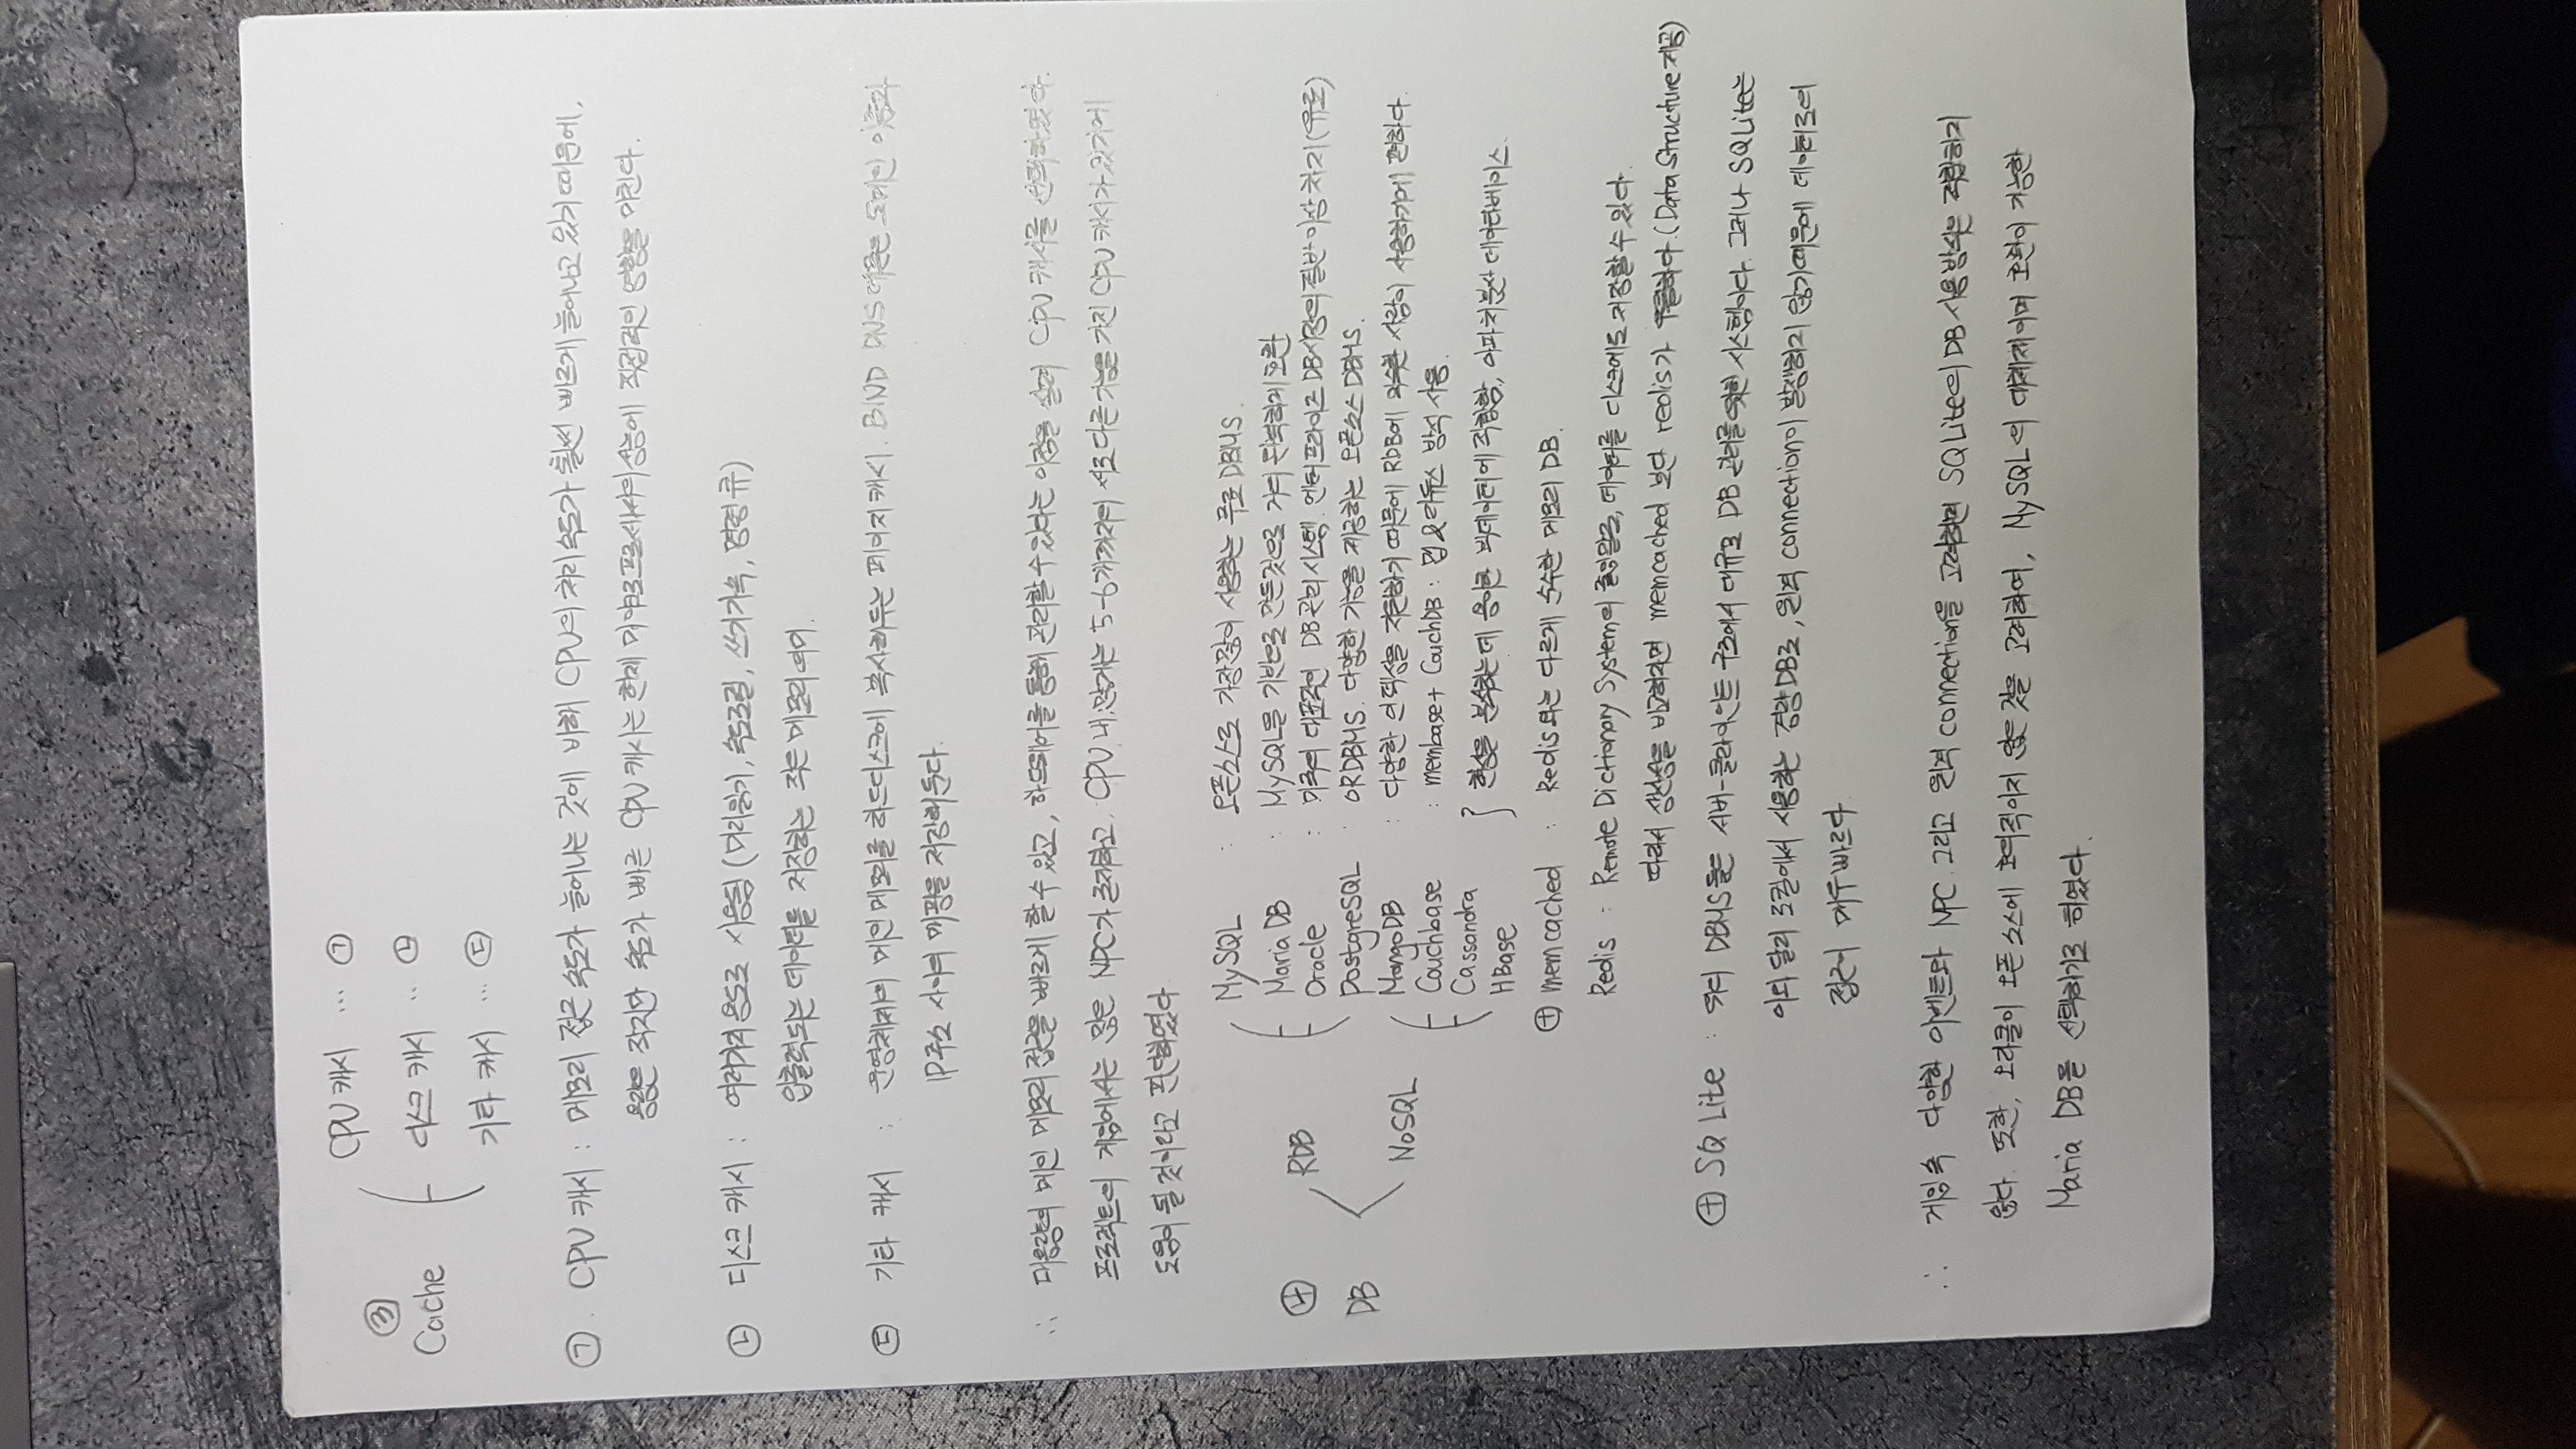 ③
Cache
CPU 캐시 … ㉠
디스크 캐시 ‥ ㉡
기타 캐시 … ㉢
㉠. CPU 캐시 : 메모리 접근 속도가 늘어나는 것에 비해 CPU의 처리속도가 훨씬 빠르게 늘어나고 있기 때문에,
용량은 작지만 속도가 빠른 CPU 캐시는 현재 마이크로프로세서의 성능에 직접적인 영향을 미친다.
㉡ 디스크 캐시 : 여러가지 용도로 사용됨 (미리읽기, 속도조절, 쓰기가속, 명령 큐)
입출력되는 데이터를 저장하는 작은 메모리이며.
㉢ 기타 캐시 : 운영체제의 메인 메모리를 하드디스크에 복사해두는 페이지 캐시. BIND DNS 데몬은 도메인 이름과
IP주소 사이의 매핑을 저장해둔다.
∴ 대용량의 메인 메모리 접근을 빠르게 할 수 있고, 하드웨어를 통해 관리할 수 있다는 이점을 살려 CPU 캐시를 선택하였다.
프로젝트의 게임에서는 많은 NPC가 존재하고, CPU 내, 많게는 5-6개까지의 서로 다른 기능을 가진 CPU 캐시가 있기에
도움이 될 것이라고 판단하였다
④
DB
RDB
MySQL : 오픈소스로 가장 많이 사용하는 무료 DBMS.
Maria DB : MySQL을 기반으로 만든것으로 거의 완벽하게 호환
Oracle : 미국의 대표적인 DB 관리 시스템. 엔터프라이즈 DB시장의 절반 이상 차지 (유료)
PostgreSQL : ORDBMS. 다양한 기능을 제공하는 오픈소스 DBMS.
NoSQL
MongoDB : 다양한 인덱싱을 지원하기 때문에 RDB에 익숙한 사람이 사용하기에 편하다.
Couchbase : membase + CouchDB : 맵&리듀스 방식 사용.
Cassandra
HBase } 현상을 분석하는데 용이한 빅데이터에 적합함, 아파치 분산 데이터베이스.
⊕ memcached : Redis와는 다르게 순수한 메모리 DB.
Redis : Remote Dictionary System의 줄임말로, 데이터를 디스크에도 저장할 수 있다.
따라서 생산성을 비교하자면 memcached 보단 redis가 우월하다. (Data Structure 제공)
⊕ SQ Lite : 위의 DBMS들은 서버-클라이언트 구조에서 대규모 DB 관리를 위한 시스템이다. 그러나 SQLite는
이와 달리 로컬에서 사용하는 경량DB로, 원격 connection이 발생하지 않기 때문에 데이터로의
접근이 매우 빠르다.
∴ 게임 속 다양한 이벤트와 NPC 그리고 원격 connection을 고려하면 SQLite의 DB 사용 방식은 적합하지
않다. 또한, 오라클이 오픈 소스에 호의적이지 않은 것을 고려하여, MySQL의 대체제이며 호환이 가능한
Maria DB를 선택하기로 하였다.